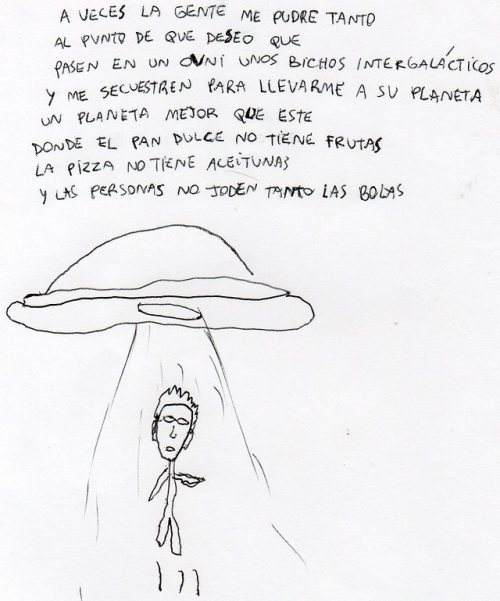 A VECES LA GENTE ME PUDRE TANTO
AL PUNTO DE QUE DESEO QUE
PASEN EN UN OVNI UNOS BICHOS INTERGALÁCTICOS
Y ME SECUESTREN PARA LLEVARME A SU PLANETA
UN PLANETA MEJOR QUE ESTE
DONDE EL PAN DULCE NO TIENE FRUTAS
LA PIZZA NO TIENE ACEITUNAS
Y LAS PERSONAS NO JODEN TANTO LAS BOLAS